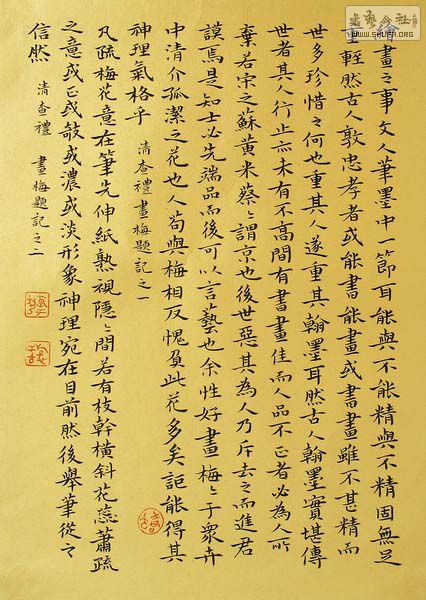 繪畫之事文人筆墨中一節耳能與不能精與不精固無足
重輕然古人敦忠孝者或能書能畫或書畫雖不甚精而
世多珍惜之何也重其人遂重其翰墨耳然古人翰墨實堪傳
世者其人行止亦未有不高間有書畫佳而人品不正者必為人所
棄若宋之蘇黃米蔡〻謂京也後世惡其為人乃斥去之而進君
謨焉是知士必先端品而後可以言藝也余性好畫梅〻于眾卉
中清介孤潔之花也人苟與梅相反愧負此花多矣詎能得其
神理氣格乎 清查禮畫梅題記之一
凡疏梅花意在筆先伸紙熟視隱〻間若有枝幹橫斜花蕊蕭疏
之意或正或欹或濃或淡形象神理宛在目前然後舉筆從之
信然 清查禮 畫梅題記之二